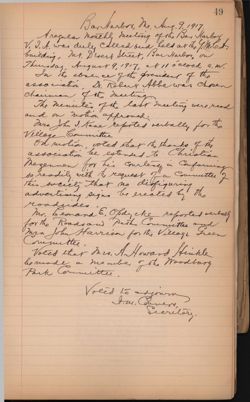 49
Bar Harbor, Me. Aug. 9, 1917
A regular monthly meeting of the Bar Harbor
V. I. A. was duly called and held at the Y.M.C.A.
building, Mt. Desert Street, Bar Harbor, on
Thursday, August 9, 1917, at 11 o'clock a.m.
In the absence of the president of the
association Dr. Robert Abbe was chosen
chairman of the meeting.
The minutes of the last meeting were read
and on motion approved.
Mrs. John I. Kane reported verbally for the
Village Committee.
On motion, voted that the thanks of the
association be extended to Christian
for his courtesy in conforming
so readily with the request of a Committee of
this society that no disfiguring
advertising signs be erected by the
roadsides.
Mr. Leonard E. Opdycke reported verbally
for the Roads and Paths Committee and
Mrs. John Harrison for the Village Green
Committee.
Voted that Mrs. A. Howard Hinkle
be made a member of the Woodbury
Park Committee.
Voted to adjourn
Secretary.